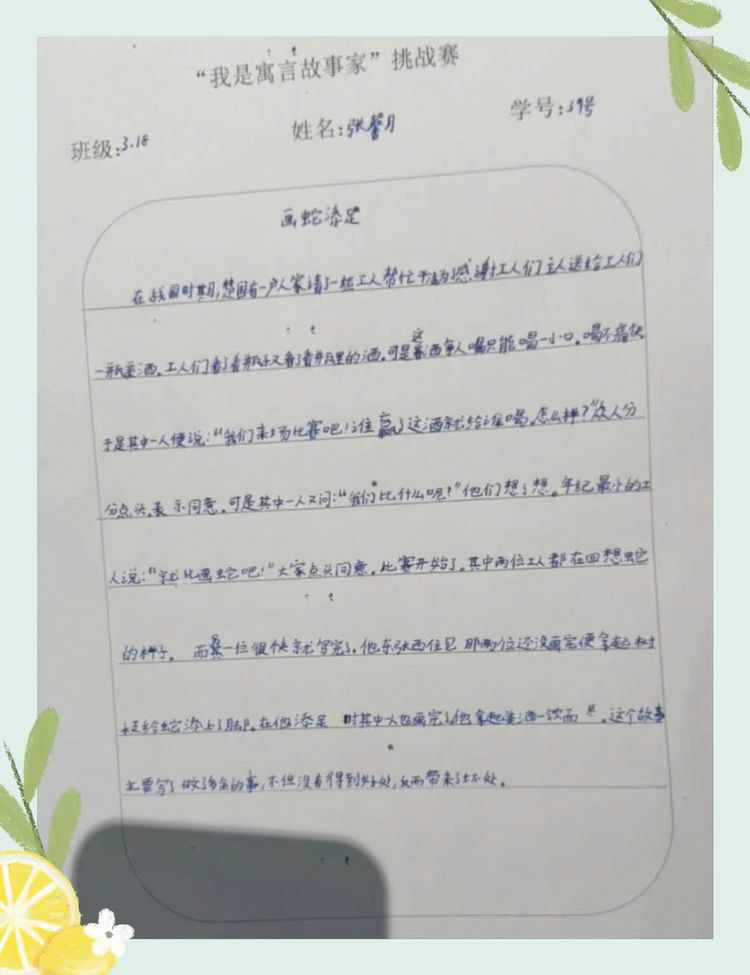 “我是寓言故事家”挑战赛
班级:3.18 姓名:张馨月 学号:39号
画蛇添足
在战国时期,楚国有一户人家请了一些工人帮忙干活为感谢工人们主人送给工人们
一瓶美酒。工人们看了看瓶子又看了看瓶里的酒。可是这酒每人喝只能喝一小口。喝不痛快
于是其中一人便说:“我们来场比赛吧!谁赢了这酒就给谁喝。怎么样?”众人分
分点头。表示同意。可是其中一人又问:“我们比什么呢?”他们想了想。年纪最小的工
人说:“就比画蛇吧!”大家点头同意。比赛开始了。其中两位工人都在回想蛇
的样子。而一位很快就写完了。他东张西 见那两位还没画完便拿起树
枝给蛇添上了脚。在他添足时其中人也画完了他拿起 酒一饮而尽。这个故事
主要写了做了多余的事,不但没有得到好处,反而带来了坏处。